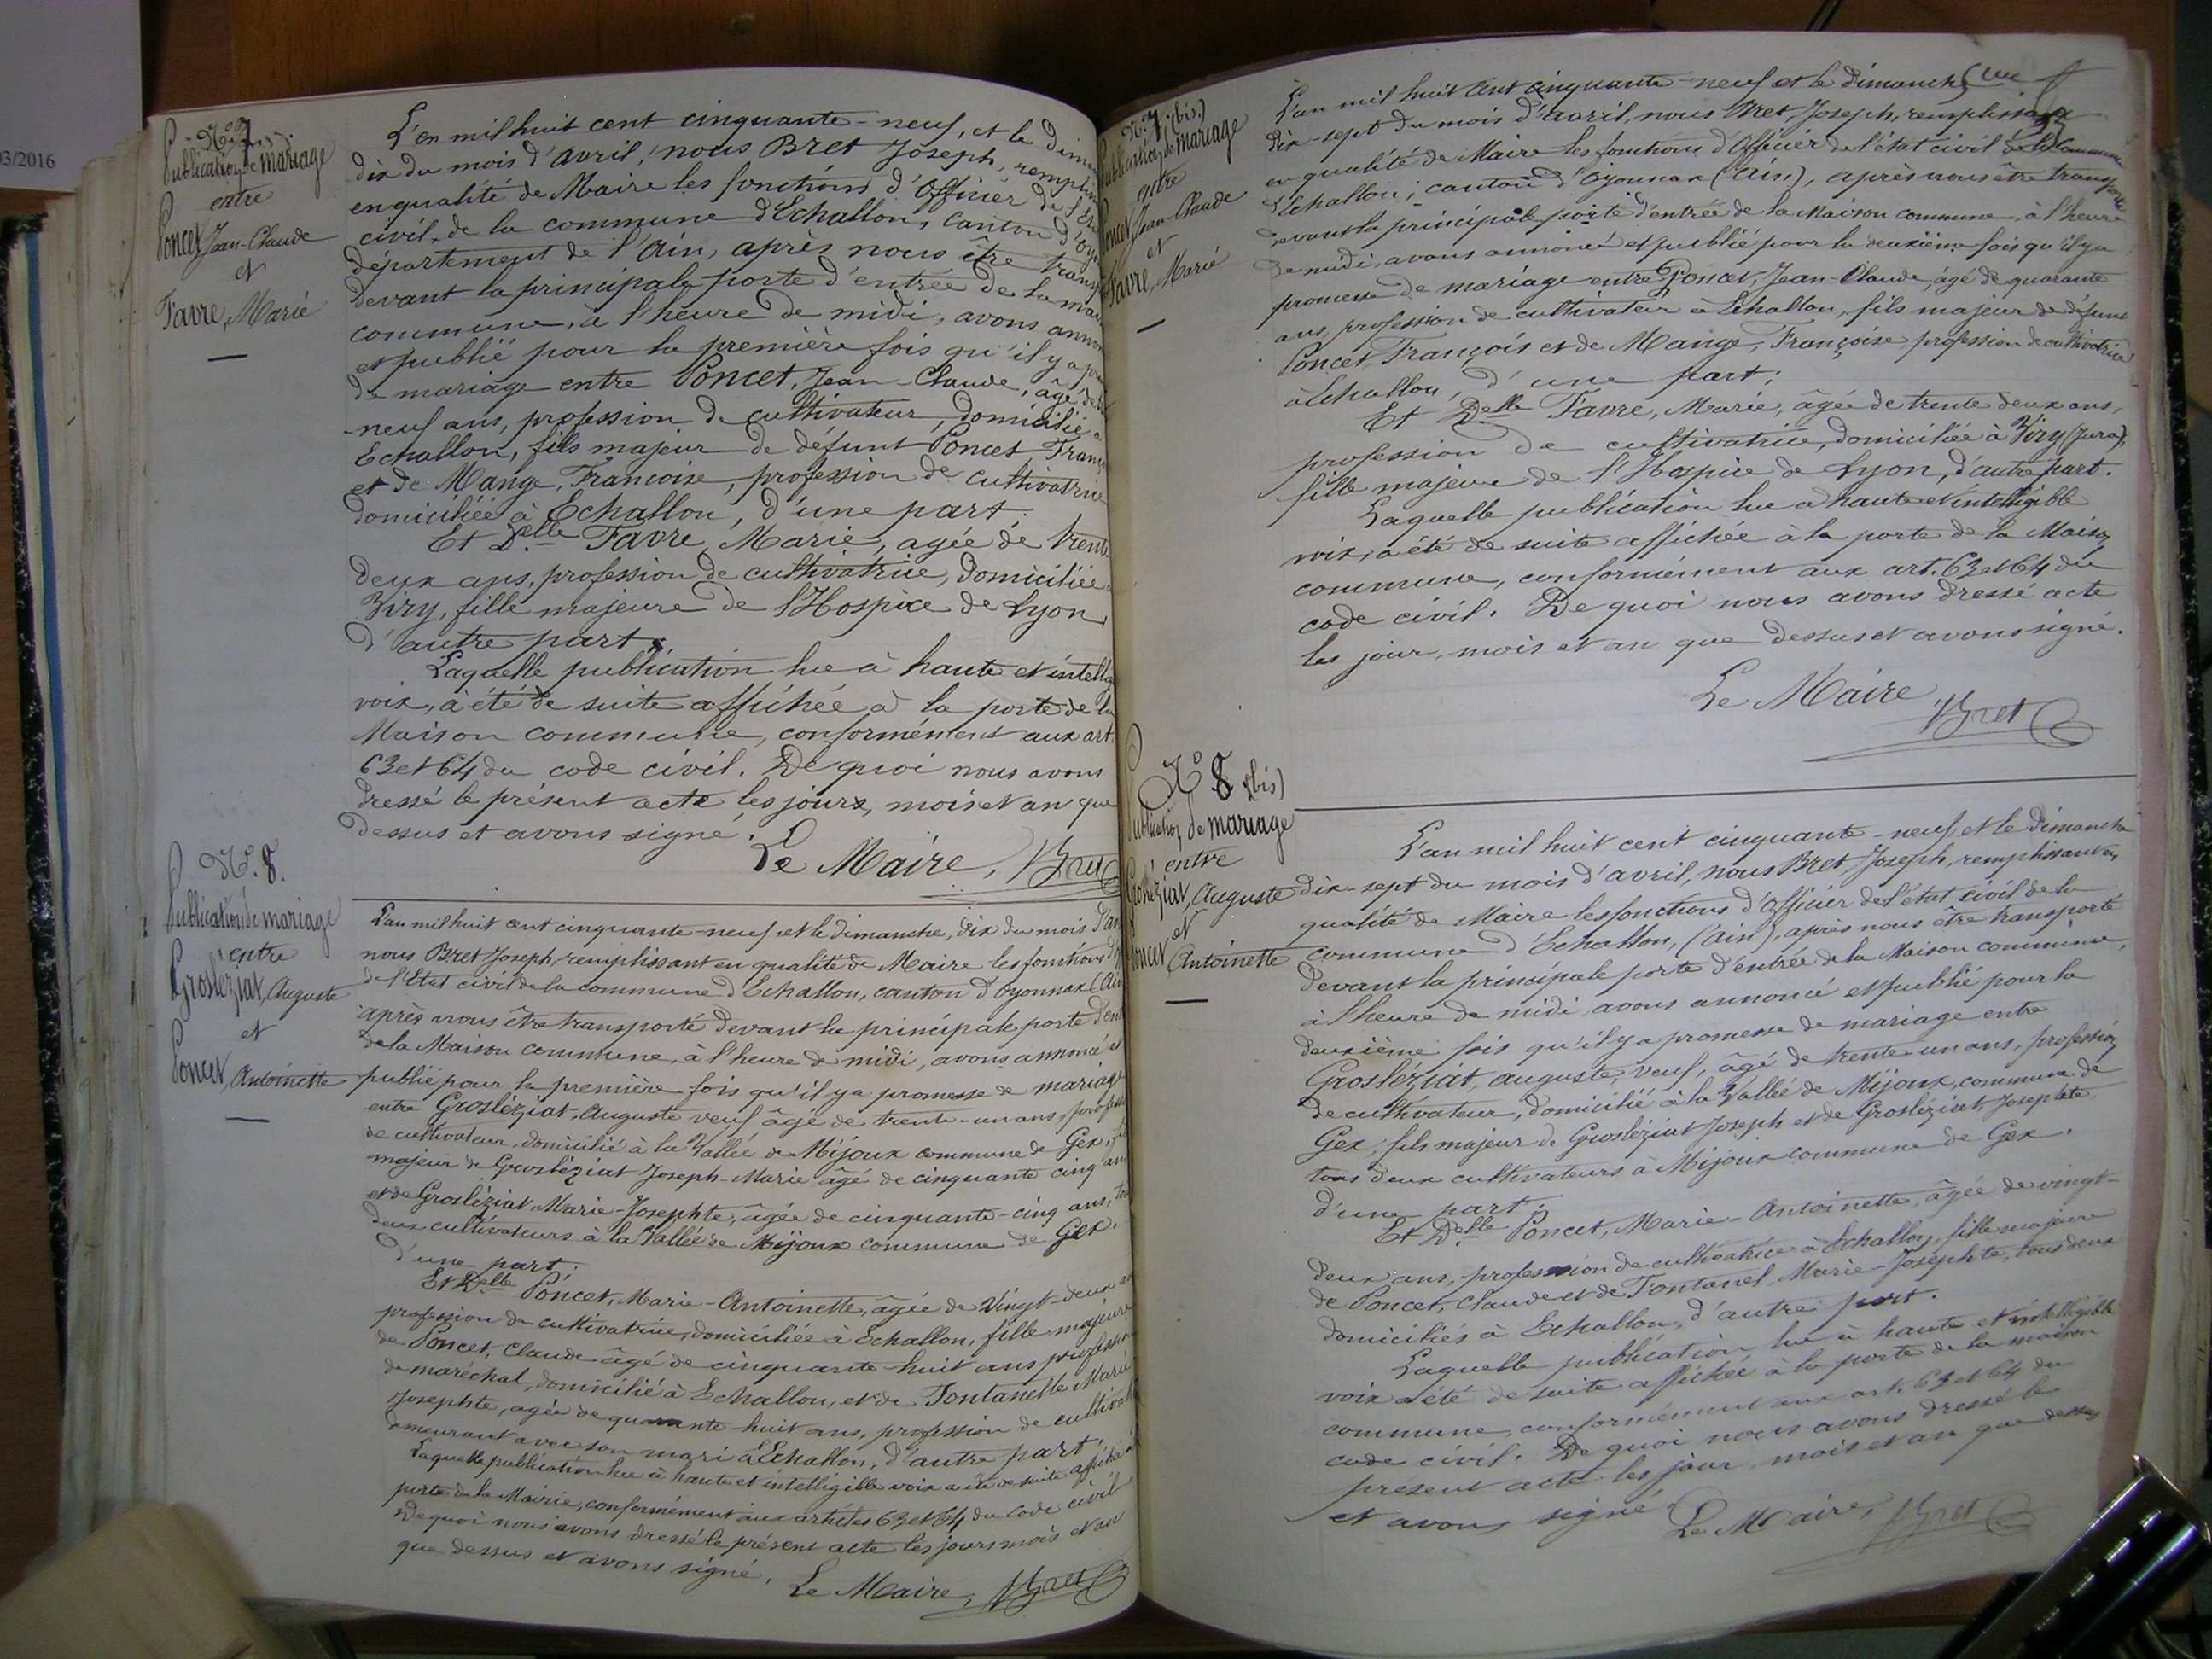 03/2016
N.º 7.
Publication de mariage
entre
Poncet Jean-Claude
et
Favre, Marie
L'en mil huit cent cinquante-neuf, et le dim
dix du mois d'avril, nous Bret Joseph, rempli
en qualité de Maire les fonctions d'Officier de l'
civil de la commune d'Echallon, canton d'
département de l'Ain, après nous être trans
devant la principale porte d'entrée de la mai
commune, à l'heure de midi, avons annon
et publié pour la première fois qu'il y a
de mariage entre Poncet, Jean-Claude, âgé de
-neuf ans, profession de cultivateur, domicilié à
Echallon, fils majeur de défunt Poncet Fran
et de Mange, Francoise, profession de cultivatrice
domiciliée à Echallon, d'une part.
Et D.elle Favre, Marie, agée de trente
deux ans, profession de cultivatrice, domiciliée
Viry, fille majeure de l'Hospice de Lyon,
d'autre part.
Laquelle publication lue à haute et intelli
voix, à été de suite affichée à la porte de la
Maison commune, conformément aux art.
63 et 64 du code civil. De quoi nous avons
dressé le présent acte les jours, mois et an que
dessus et avons signé.
Le Maire, Bret
N.º 8.
Publication de mariage
entre
Grosléziat, Auguste
et
Poncet, Antoinette
L'an mil huit cent cinquante-neuf et le dimanche, dix du mois d'av
nous Bret Joseph, remplissant en qualité de Maire les fonctions d'
de l'Etat civil de la commune d'Echallon, canton d'Oyonnax (Ain
après nous être transporté devant la principale porte d'en
de la Maison commune, à l'heure de midi, avons annoncé et
publié pour la première fois qu'il y a promesse de mariage
entre Grosléziat, Auguste veuf âgé de trente-un ans profess
de cultivateur, domicilié à la Vallée de Mijoux commune de Gex,
majeur de Grosléziat Joseph-Marie âgé de cinquante cinq ans
et de Grosléziat, Marie-Josephte, âgée de cinquante-cinq ans, to
deux cultivateurs à la Vallée de Mijoux commune de Gex.
d'une part.
Et D.elle Poncet, Marie-Antoinette, âgée de Vingt-deux an
profession de cultivatrice, domiciliée à Echallon, fille majeure
de Poncet, Claude âgé de cinquante-huit ans profession
de maréchal, domicilié à Echallon, et de Fontanelle Marie
Josephte, agée de quarante-huit ans, profession de cultivat
demeurant avec son mari à Echallon, d'autre part.
Laquelle publication lue à haute et intelligible voix a été de suite affichée
porte de la Mairie, conformément aux articles 63 et 64 du code civil
De quoi nous avons dressé le présent acte les jours mois et an
que dessus et avons signé.
Le Maire, Bret
N.º 7, (bis)
Publication de mariage
entre
Poncet Jean-Claude
et
Favre, Marie
L'an mil huit cent cinquante-neuf et le dimanche
dix-sept du mois d'avril, nous Bret, Joseph, remplissant
en qualité de Maire les fonctions d'Officier de l'état civil de la Commune
d'Echallon, canton d'Oyonnax (Ain), après nous être transporté
devant la principale porte d'entrée de la Maison commune, à l'heure
de midi, avons annoncé et publié pour la deuxième fois qu'il y a
promesse de mariage entre Poncet, Jean-Claude, âgé de quarante
ans, profession de cultivateur à Echallon, fils majeur de défunt
Poncet, François et de Mange, Françoise profession de cultivatrice
à Echallon, d'une part;
Et D.elle Favre, Marie, âgée de trente deux ans,
profession de cultivatrice, domiciliée à Viry (Jura),
fille majeure de l'Hospice de Lyon, d'autre part.
Laquelle publication lue à haute et intelligible
voix, a été de suite affichée à la porte de la Maison
commune, conformément aux art. 63 et 64 du
code civil. De quoi nous avons dressé acte
les jour, mois et an que dessus et avons signé.
Le Maire, Bret
N.º 8 (bis)
Publication de mariage
entre
Grosléziat, Auguste
et
Poncet Antoinette
L'an mil huit cent cinquante-neuf, et le dimanche
dix-sept du mois d'avril, nous Bret Joseph, remplissant en
qualité de Maire les fonctions d'Officier de l'état civil de la
commune d'Echallon, (Ain), après nous être transporté
devant la principale porte d'entrée de la Maison commune,
à l'heure de midi, avons annoncé et publié pour la
deuxième fois qu'il y a promesse de mariage entre
Grosléziat, auguste, veuf, âgé de trente un ans, profession
de cultivateur, domicilié à la Vallée de Mijoux, commune de
Gex, fils majeur de Grosléziat Joseph et de Grosléziat, Josephte
tous deux cultivateurs à Mijoux commune de Gex.
d'une part.
Et D.elle Poncet, Marie-Antoinette, âgée de vingt-
deux ans, profession de cultivatrice à Echallon, fille majeure
de Poncet, Claude et de Fontanel, Marie-Josephte, tous deux
domiciliés à Echallon, d'autre part.
Laquelle publication, lue à haute et intelligible
voix a été de suite affichée à la porte de la maison
commune, conformément aux art. 63 et 64 du
code civil. De quoi nous avons dressé le
présent acte les jour, mois et an que dessus
et avons signé.
Le Maire, Bret